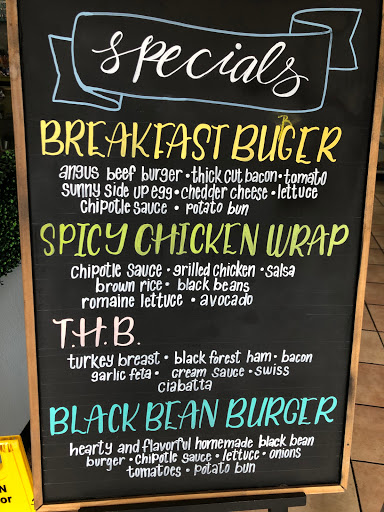 specials
BREAKFAST BUGER
B
angus beef burger • thick cut bacon • tomato
sunny side up egg • chedder cheese • lettuce
chipotle sauce • potato bun
SPICY CHICKEN WRAP
chipotle sauce • grilled chicken • salsa
brown rice • black beans
romaine lettuce • avocado
T.H.B.
turkey breast • black forest ham • bacon
garlic feta • cream sauce • swiss
ciabatta
BLACK BEAN BURGER
hearty and flavorful homemade black bean
burger • chipotle sauce • lettuce • onions
tomatoes • potato bun